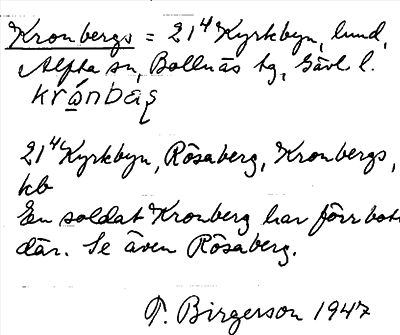 Kronbergs = 21⁴ Kyrkbyn, lund,
Alfta sn, Bollnäs tg, Gävl. l.
krånbaʂ
21⁴ Kyrkbyn, Rösaberg, Kronbergs,
kb
En soldat Kronberg har förr bott
där. Se även Rösaberg.
T. Birgerson 1947